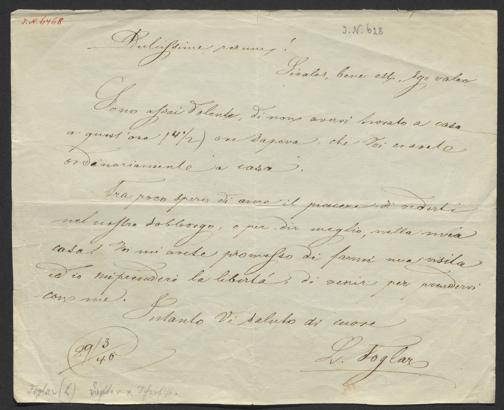 I.N. 6468
I.N. 628
Si vales, bene est, ego valeo
Sono assai dolente, di non avervi trovato a casa
a quest'ora (4 1/2) ore sapeva che Voi eravate
ordinariamente "a casa".
Fra poco spero di avere il piacere di vederti
nel nostro sobborgo, o per dir meglio, nella mia
casa! Voi mi avete promesso di farmi una visita
ed io mi prenderò la libertà, di venir per prendervi
con me.
Intanto Vi saluto di cuore
29/3
46
L. Foglar
Foglar (L)